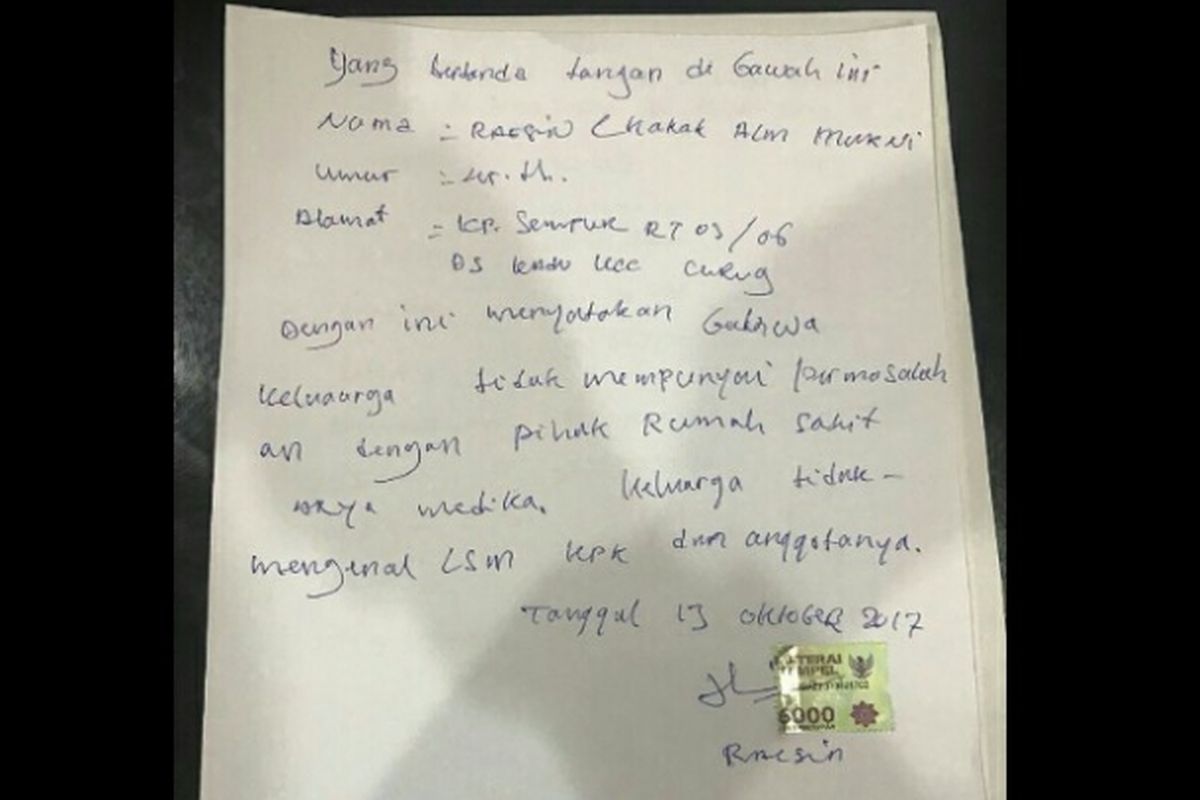 Yang bertanda tangan di bawah ini
Nama = RAESIN (kakak ALM MUKNI
Umur = th.
Alamat = KP. SEMPUR RT 03/06
DS kadu kec curug
Dengan ini menyatakan bahwa
keluaarga tidak mempunyai permasalah
an dengan pihak Rumah sakit
arya medika. keluarga tidak -
mengenal LSM KPK dan anggotanya.
Tanggal 13 OKTOBER 2017
METERAI
TEMPEL
6000
Raesin